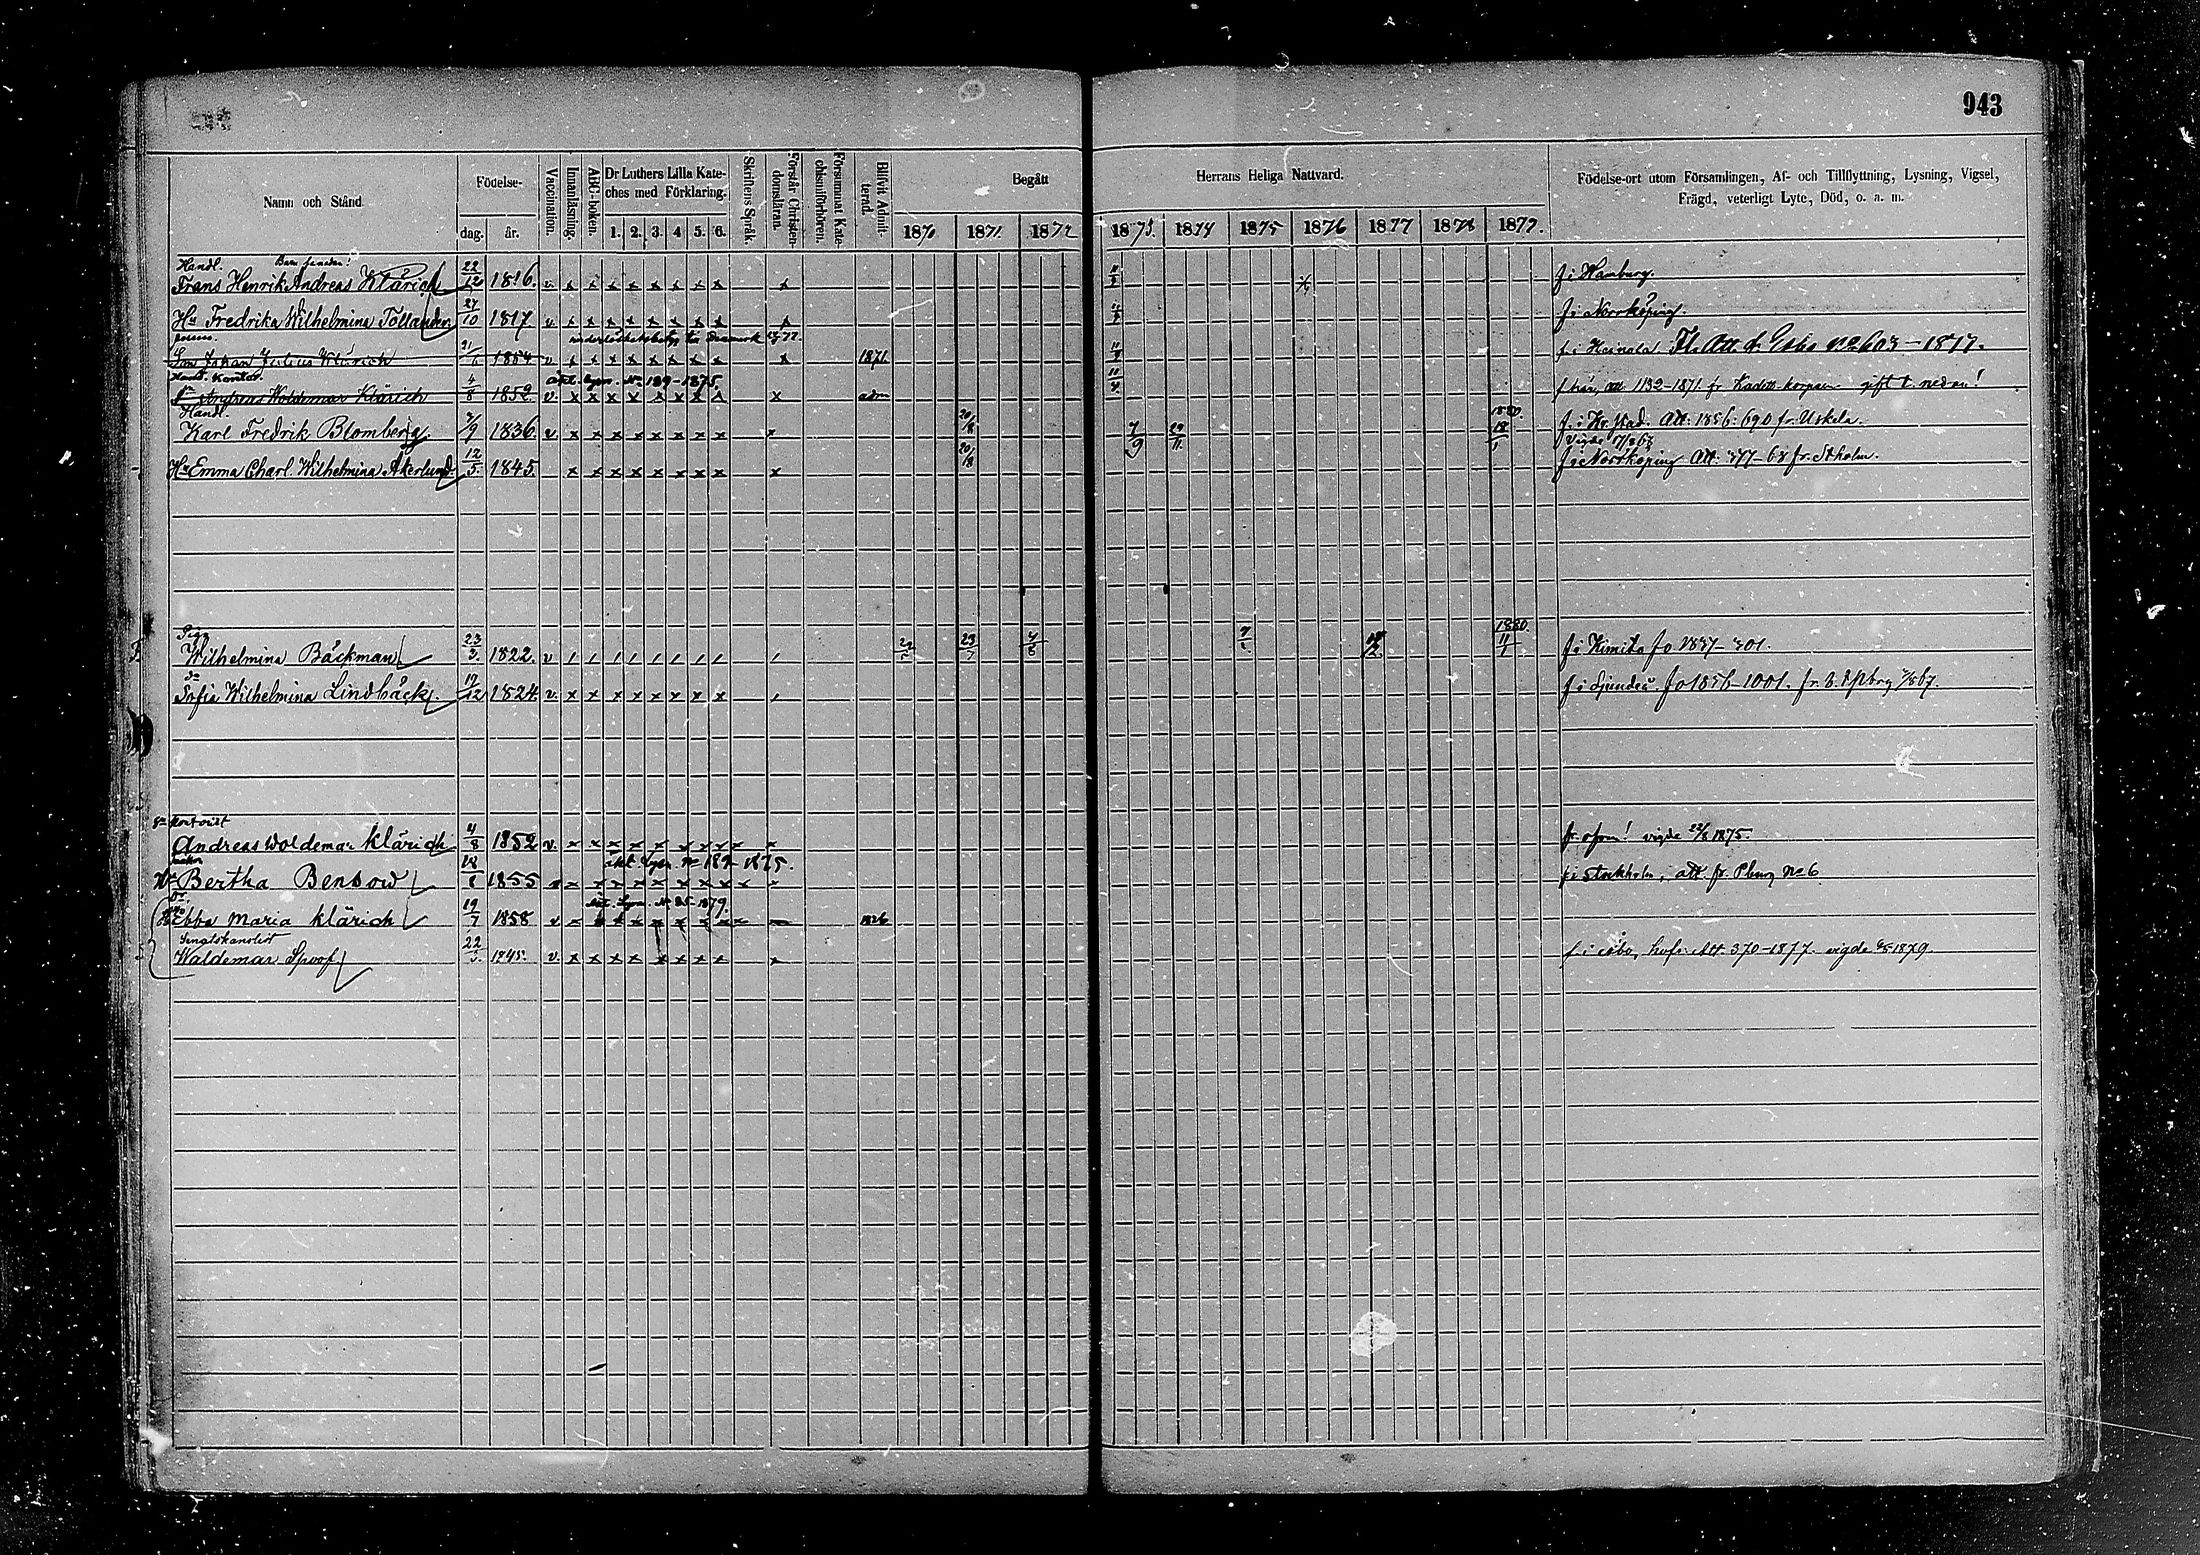 943
Namn och Stånd.
Födelse-
dag. år.
Vaccination.
Innanläsning.
ABC-boken.
Dr Luthers Lilla Kate-
ches med Förklaring.
1. 2. 3. 4 5. 6.
Skriftens Språk.
Förstår Christen-
domsläran.
Försummat Kate-
chismiförhören.
Blifvit Admit-
terad.
Begått
Herrans Heliga Nattvard.
1870 1871. 1872 1873. 1874 1875 1876 1877 1878 1879.
Födelse-ort utom Församlingen, Af- och Tillflyttning, Lysning, Vigsel,
Frägd, veterligt Lyte, Död, o. a. m.
Handl.
Frans Henrik Andreas Klärich 22/12 1816. v x x x x x x x x x f i Hamburg.
Hu Fredrika Wilhelmina Tollander 27/10 1817 v. x x x x x x x x x f i Norrköping.
Son Johan Julius Klärich 21/6 1854 v x x x x x x x x x 1871. f i Heinola Fl. Att. d. No 603 – 1877.
Handl. Kontor. Att. lysn. No 189–1875.
Andreas Woldemar Klärich 4/8 1852 v. x x x x x x x x x adm att 1132–1871. fr Kadett-korpsen gift t. nedan!
Handl. 1880.
Karl Fredrik Blomberg 2/9 1836 v x x x x x x x x x 20/8 7/9 29/11 18/1 Att: 1856: 690 fr. Uskela.
Vigde
Hu Emma Charl. Wilhelmina Åkerlund 12/5. 1845. x x x x x x x x x 20/8 f i Norrköping Att: 377–68 fr. Stholm.
Piga 1880.
Wilhelmina Bäckman 23/3. 1822. v 23/7 11/1 f i Kimito fo 1837–301.
do
Sofia Wilhelmina Lindbäck. 17/12 1824 v. x x x x x x x x f i Sjundeå fo 1856–1001. fr. S:t Pbrg 7/8 67.
Sn Kontorist
Andreas Woldemar Klärich 4/8 1852 v. x x x x x x x x x x fr. ofvan! vigde 22/8 1875.
Att. Lysn. No 189 1875.
Hu Bertha Bensow 18/8 1855 x x x x x x x x x f i Stockholm, att fr. Pburg No 6
Att. Lysn. No 35 1879.
Ebba Maria Klärich 19/7 1858 v x x x x x x x x 1876
Senatskanslist
Waldemar Spoof 22/3. 1845. v. x x x x x x x x x f. i Åbo, Att. 370–1877. vigde 1879.